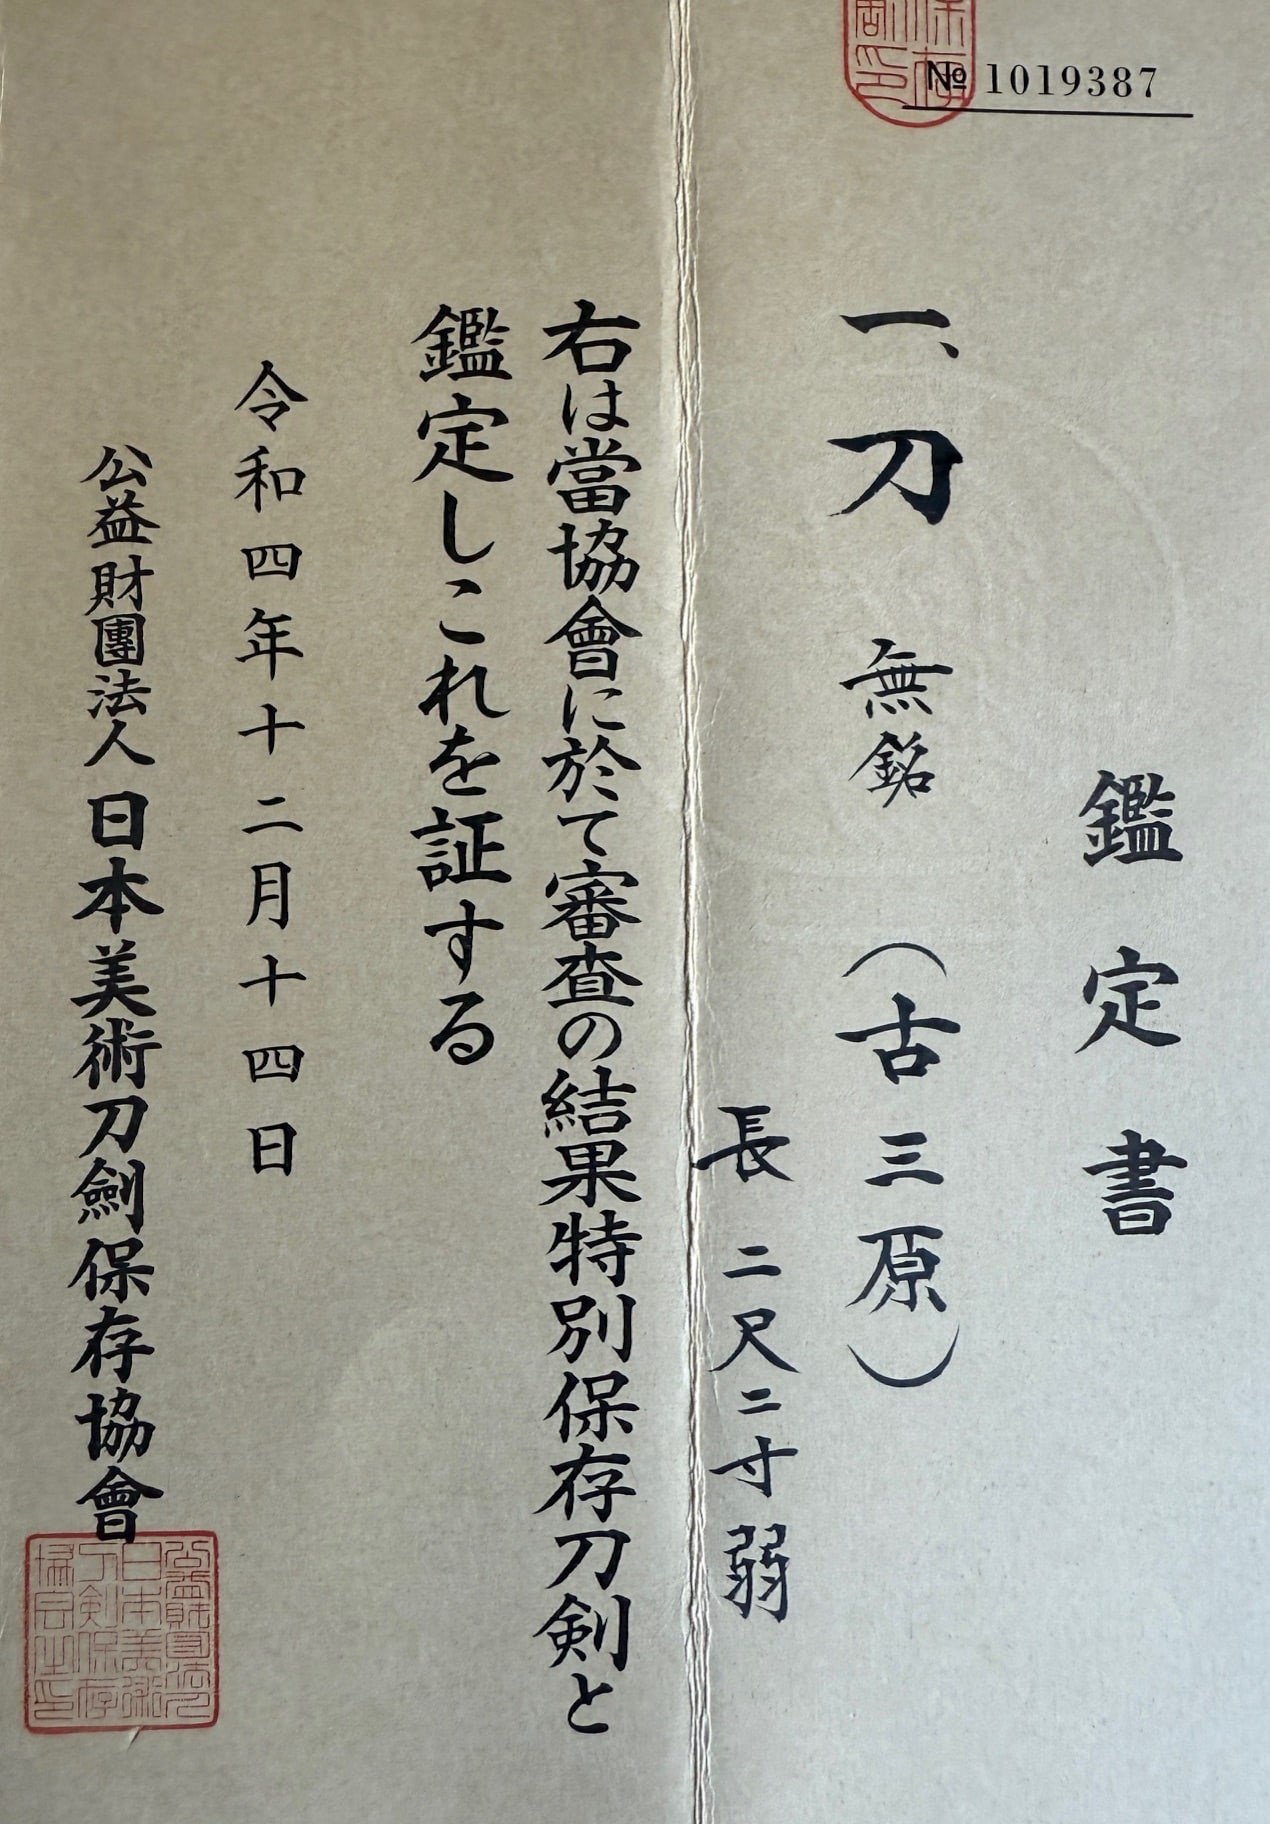 № 1019387
鑑定書
一、刀 無銘 (古三原)
長 二尺二寸弱
右は當協會に於て審査の結果特別保存刀剣と
鑑定しこれを証する
令和四年十二月十四日
公益財團法人 日本美術刀劍保存協會